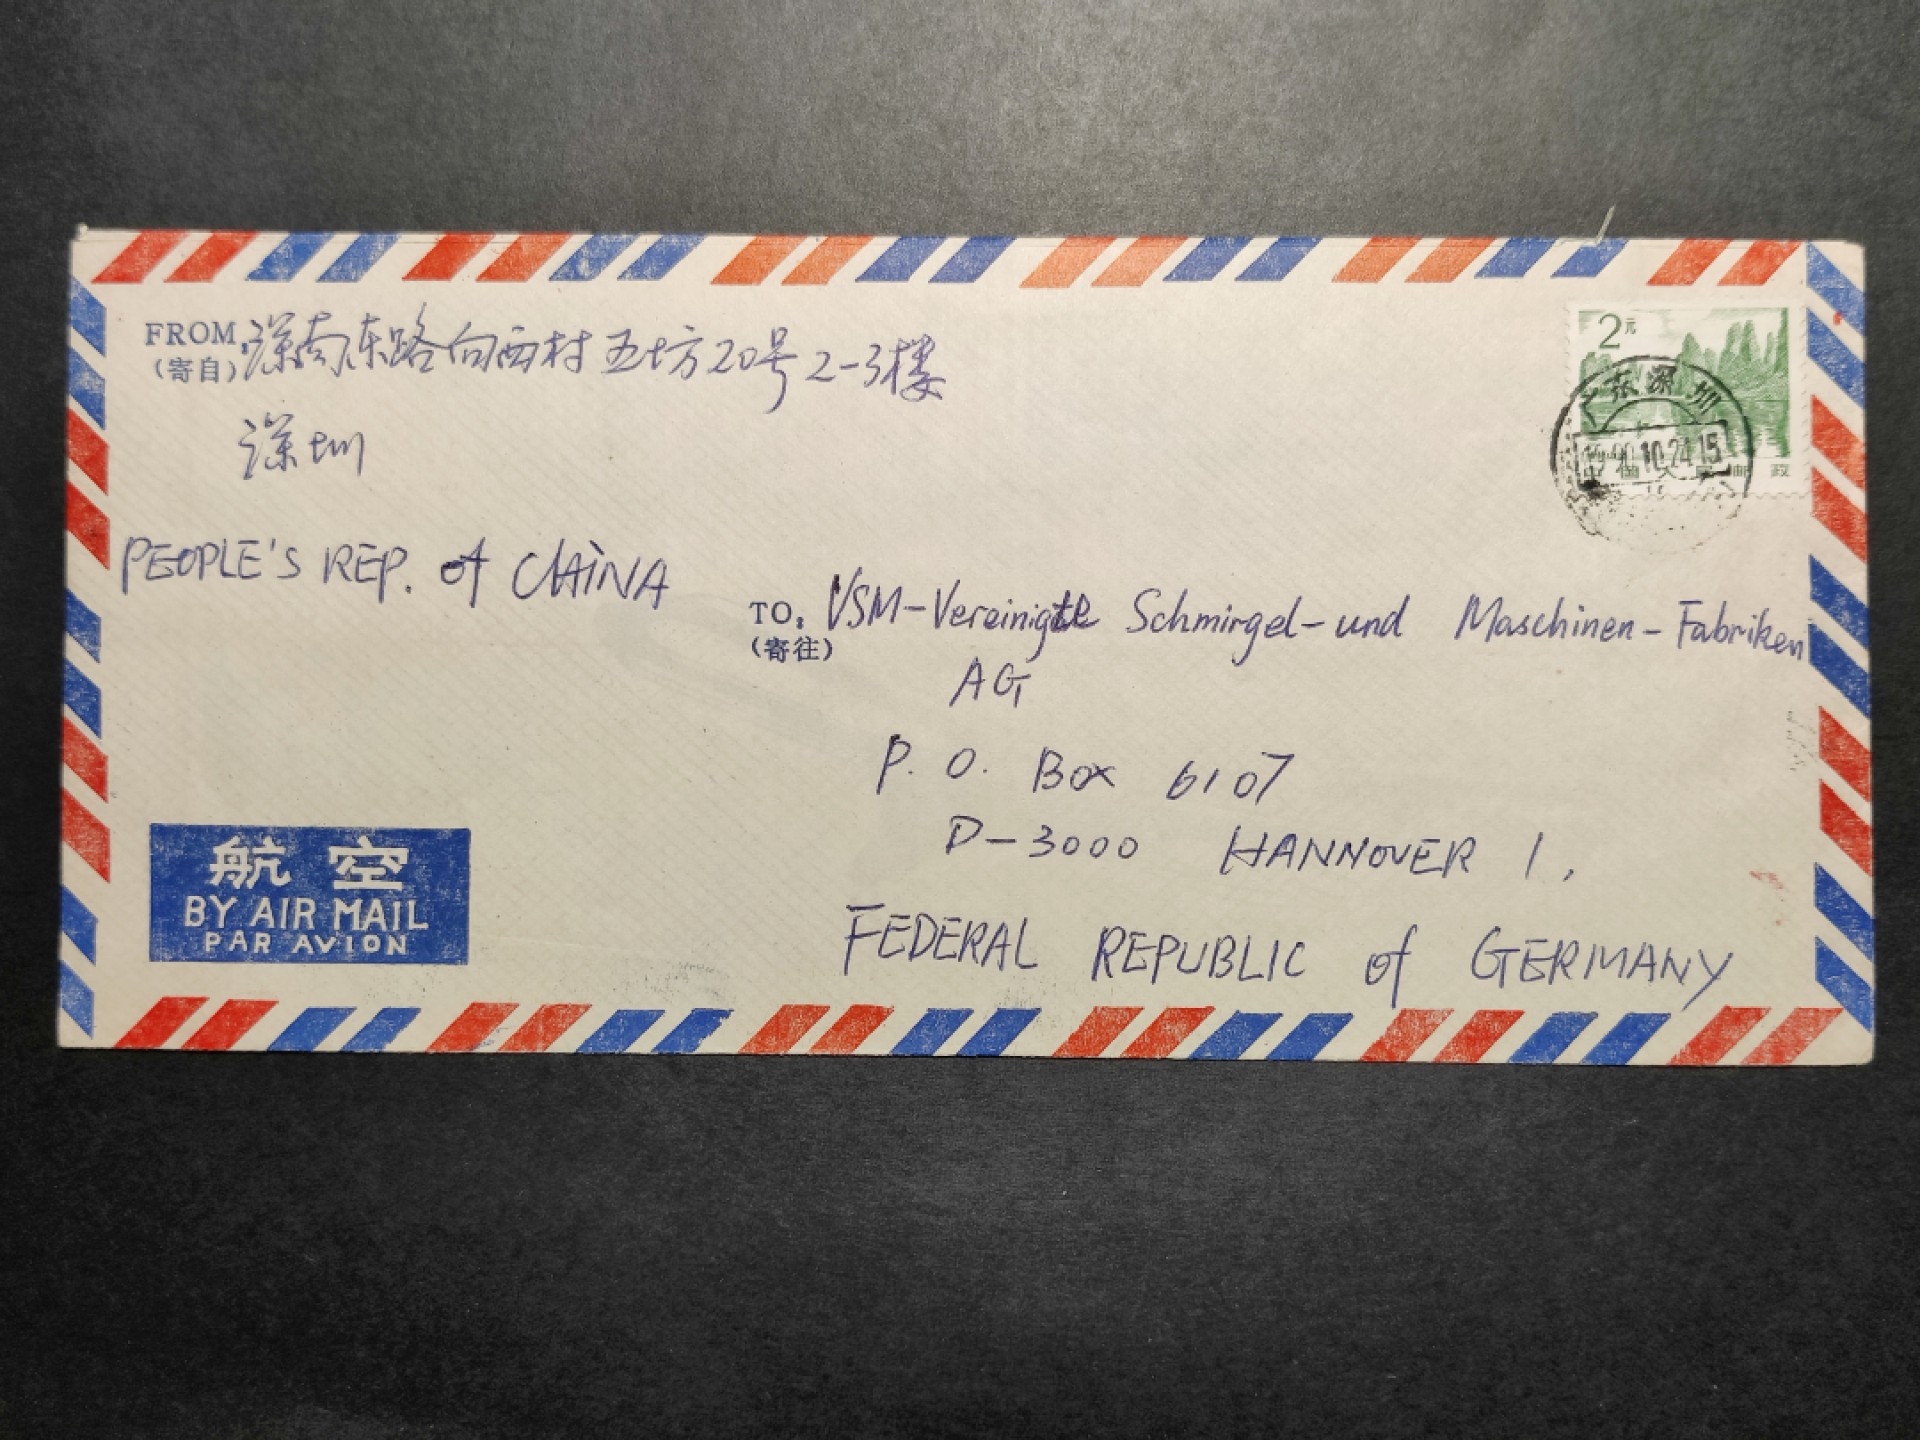 FROM: 深南东路向西村五坊20号2-3楼
(寄自)
深圳
PEOPLE'S REP. of CHINA
2元
广东深圳
10.24.15
中国人民邮政
TO: VSM-Vereinigte Schmirgel-und Maschinen-Fabriken
(寄往)
AG
P. O. Box 6107
D-3000 HANNOVER 1.
FEDERAL REPUBLIC of GERMANY
航空
BY AIR MAIL
PAR AVION